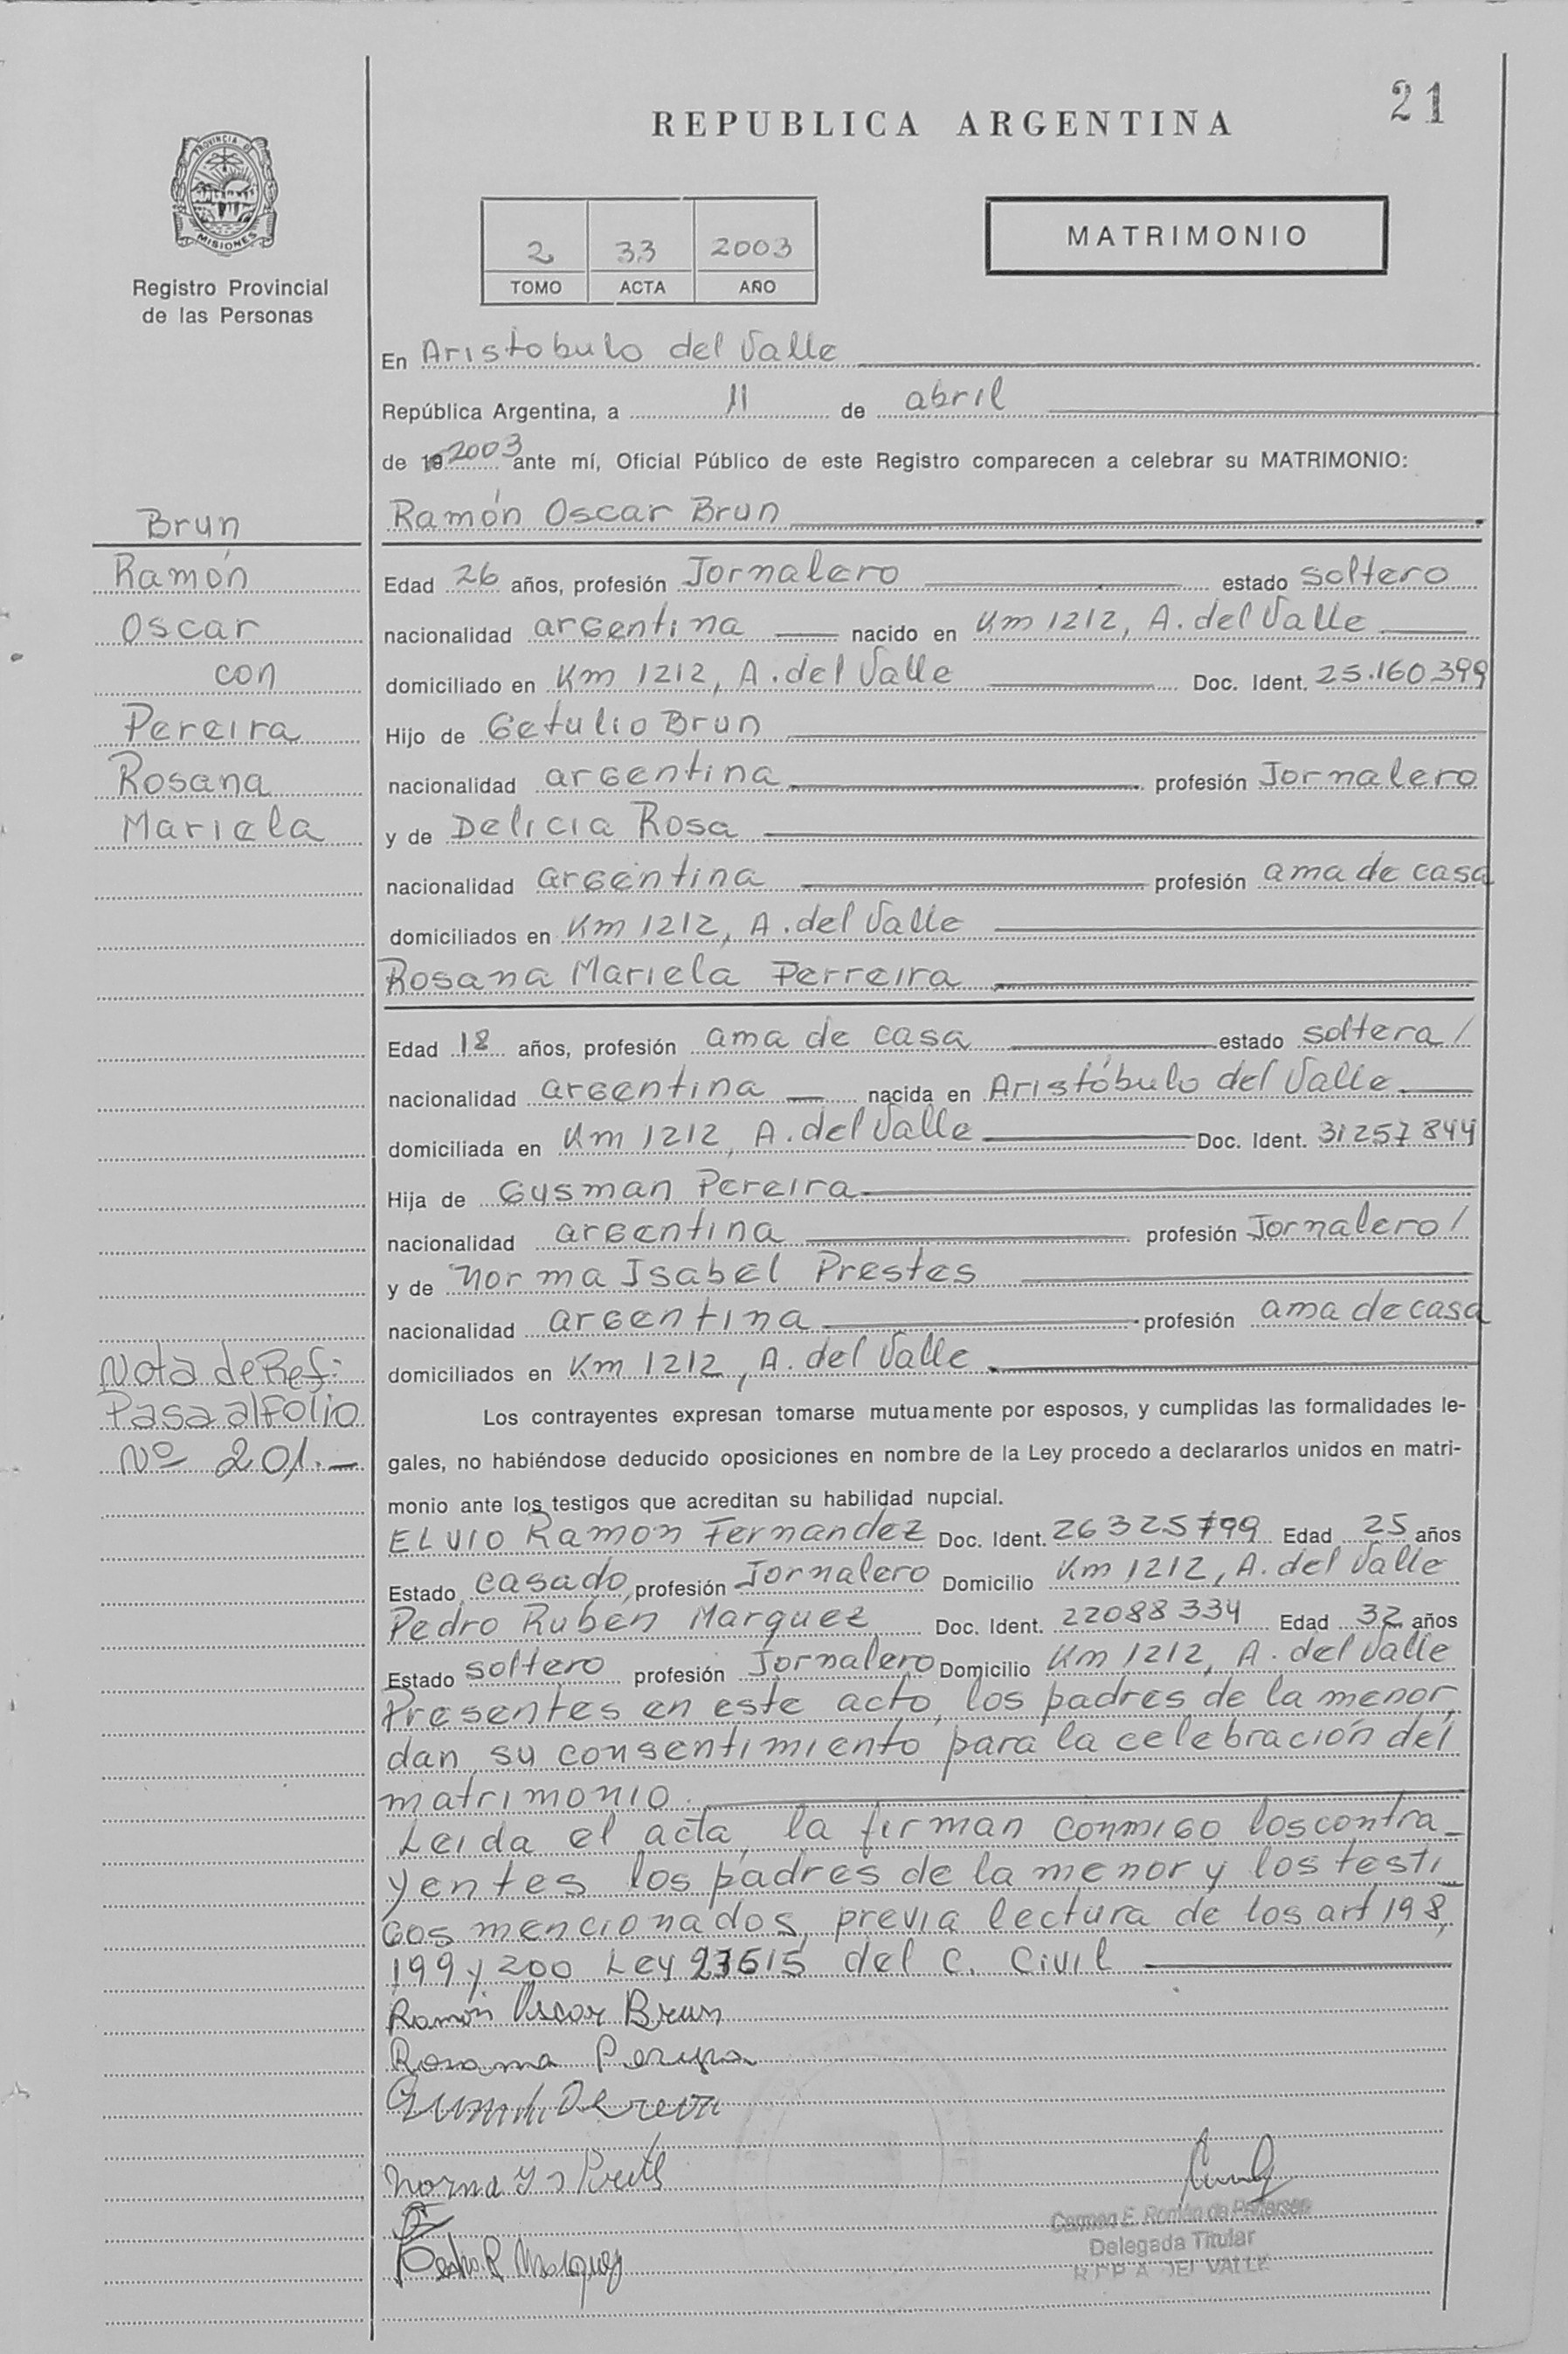 21
REPUBLICA ARGENTINA
PROVINCIA DE
MISIONES
Registro Provincial
de las Personas
2 33 2003
TOMO ACTA AÑO
MATRIMONIO
En Aristobulo del Valle
República Argentina, a 11 de abril
de 19 2003 ante mí, Oficial Público de este Registro comparecen a celebrar su MATRIMONIO:
Brun
Ramón
Oscar
con
Pereira
Rosana
Mariela
Ramón Oscar Brun
Edad 26 años, profesión Jornalero estado soltero
nacionalidad argentina nacido en Km 1212, A. del Valle
domiciliado en Km 1212, A. del Valle Doc. Ident. 25.160.399
Hijo de Getulio Brun
nacionalidad argentina profesión Jornalero
y de Delicia Rosa
nacionalidad argentina profesión ama de casa
domiciliados en Km 1212, A. del Valle
Rosana Mariela Perreira
Edad 18 años, profesión ama de casa estado soltera/
nacionalidad argentina nacida en Aristóbulo del Valle
domiciliada en Km 1212, A. del Valle Doc. Ident. 31257844
Hija de Gusman Pereira
nacionalidad argentina profesión Jornalero/
y de Norma Isabel Prestes
nacionalidad argentina profesión ama de casa
domiciliados en Km 1212, A. del Valle
Nota de Ref:
Pasa al Folio
Nº 201.-
Los contrayentes expresan tomarse mutuamente por esposos, y cumplidas las formalidades le-
gales, no habiéndose deducido oposiciones en nombre de la Ley procedo a declararlos unidos en matri-
monio ante los testigos que acreditan su habilidad nupcial.
ELVIO Ramon Fernandez Doc. Ident. 26325799 Edad 25 años
Estado casado, profesión Jornalero Domicilio Km 1212, A. del Valle
Pedro Rubén Marquez Doc. Ident. 22088334 Edad 32 años
Estado soltero profesión Jornalero Domicilio Km 1212, A. del Valle
Presentes en este acto, los padres de la menor,
dan su consentimiento para la celebración del
matrimonio.
Leida el acta, la firman conmigo los contra-
yentes los padres de la menor y los testi
gos mencionados, previa lectura de los art 198,
199 y 200 Ley 23515 del C. Civil
Ramón Oscar Brun
Rosana Pereyra
Norma
Pedro R Marquez
Carmen E. Román de Pedersen
Delegada Titular
A. DEL VALLE